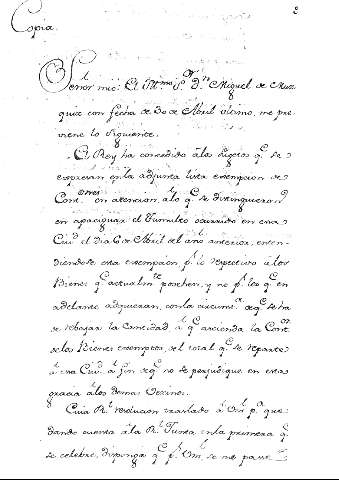 2
Copia.
Señor mio: El Illmo. Sr. Dn. Miguel de Muz
quiz con fecha de 30 de Abril ultimo, me pre
viene lo siguiente.
El Rey ha concedido à los Sugetos qe. se
expresan en la adjunta lista exempcion de
Contones. en atencion à lo qe. se distinguieron
en apaciguar el Tumulto ocurrido en esa
Ciud. el dia 6 de Abril del año anterior, enten-
diendose esta exempcion pr. lo respectivo à los
Bienes qe. actualmte. posehen, y no pr. los qe. en
adelante adquieran, con la circunsa. de qe. se ha
de rebajar la cantidad à qe. ascienda la Conton.
de los Bienes exemptos, del total qe. se reparte
à esa Ciud. à fin de qe. no se perjudique en esta
gracia à los demas Vecinos.
Cuia Rl. resolucion traslado à Vm. pa. que
dando cuenta à la Rl. Junta en la primera qe.
se celebre, disponga qe. pr. Vm. se me pase